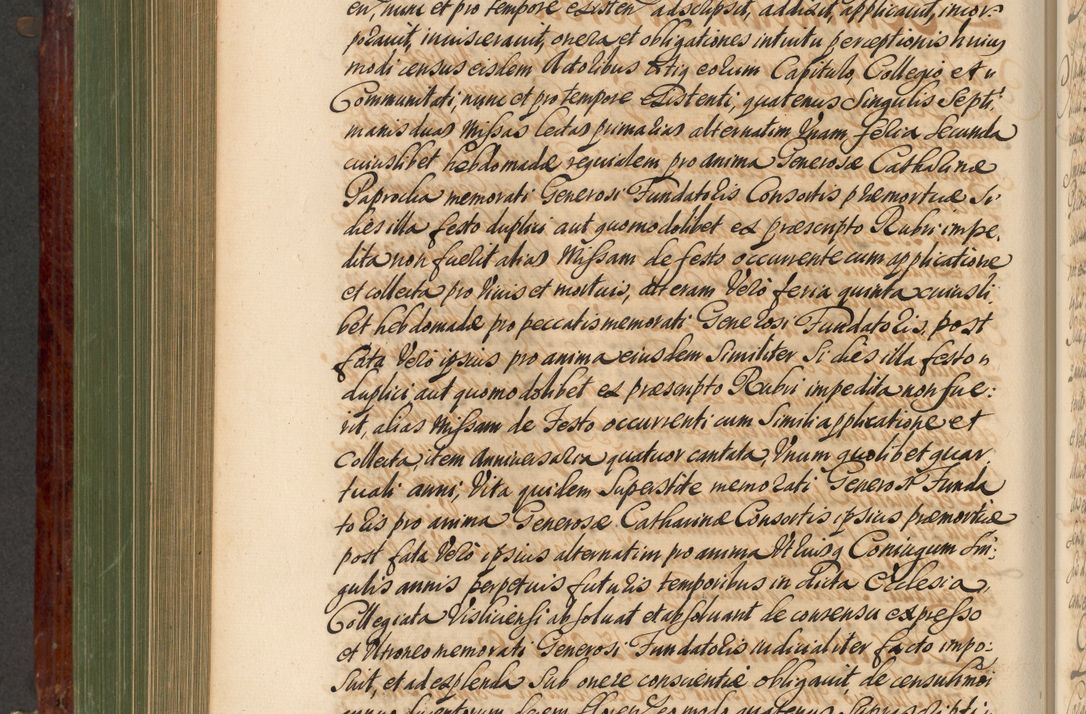 en, nunc et pro tempore existen adscripsit, addixit, applicavit, incor-
poravit, invisceravit, onera et obligationes intuitu perceptionis huius
modi census eisdem Actoribus utiq eorum Capitulo, Collegio et
Communitati, nunc et pro tempore existenti, quatenus Singulis Septi.
manis duas Missas lectas primarias alternatim Unam feria Secunda
cuiuslibet hebdomadæ requialem pro anima Generosæ Catharinæ
Paprocka memorati Generosi Fundatoris Consortis præmortuæ Si
dies illa festo duplici aut quomodolibet ex præscripto Rubri impe.
dita non fuerit alias Missam de festo occurrente cum applicatione
et collecta pro Vivis et mortuis, alteram Vero feria quinta cuiusli
bet hebdomadæ pro peccatis memorati Generosi Fundatoris, post
fata Vero ipsius pro anima eiusdem Similiter Si dies illa festo
duplici aut quomodolibet ex præscripto Rubri impedita non fue:
rit, alias Missam de Festo occurrenti cum Simili applicatione et
Collecta, item Anniversaria quatuor cantata, Unum quolibet quar
tuali anni, Vita quidem Superstite memorati Generosi Funda
toris pro anima Generosæ Catharinæ Consortis ipsius præmortuæ
post fata Vero ipsius alternatim pro anima Utriusq Coniugum Sin:
gulis annis perpetuis futuris temporibus in dicta Ecclesia
Collegiata Visliciensi absolvat et absolvant de consensu expresso
et Ultroneo memorati Generosi Fundatoris iudicialiter facto impo:
suit, et ad explenda Sub onere conscientiæ obligavit, de censu hmoi